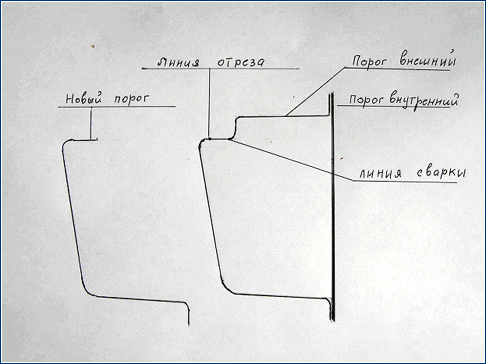 Линия отреза
Порог внешний
Новый порог
Порог внутренний
линия сварки